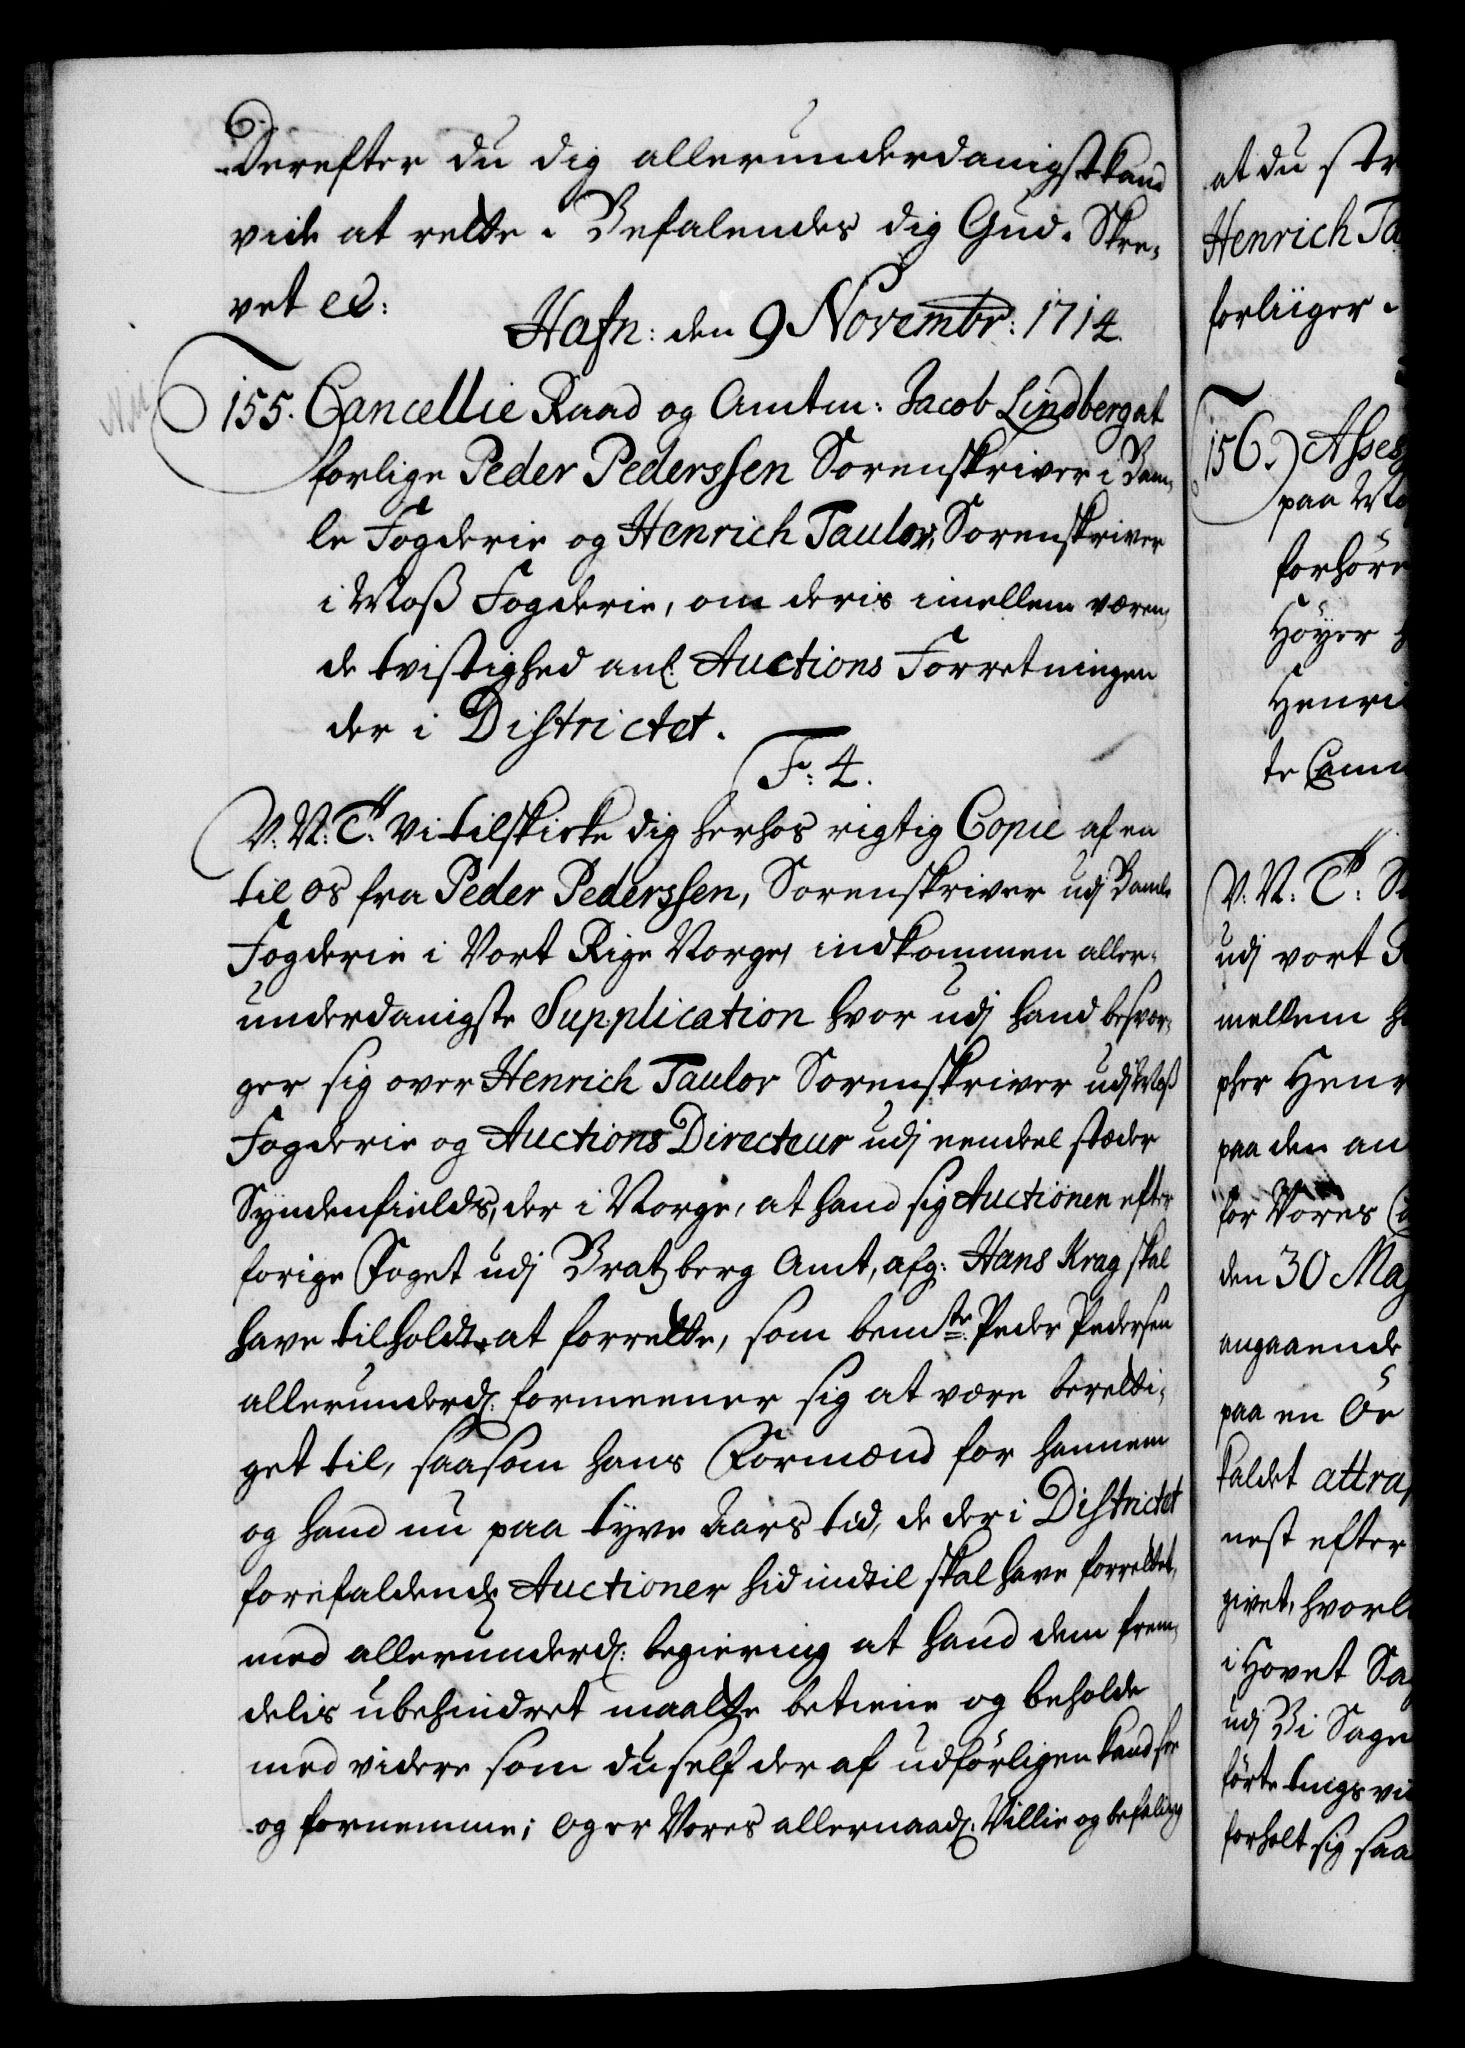 Derefter du dig allerunderdanigst kand
vide at rette. Befalendes dig Gud. Skre-
vet ec:
Hafn: den 9 Novembr: 1714.
155. Cancellie Raad og Amtm: Jacob Lindberg at
forlige Peder Pederssen Sorenskriver i Bam-
le Fogderie og Henrich Taulov, Sorenskriver
i Moß Fogderie, om deris imellem væren-
de tvistighed anl. Auctions Forretningen
der i Districtet.
F: 4.
V. N: T: Vi tilskicke dig herhos rigtig Copie af en
til os fra Peder Pederssen, Sorenskriver udj Bamle
Fogderie i Vort Rige Norge, indkommen aller-
underdanigste Supplication hvor udj hand besvær-
ger sig over Henrich Taulov Sorenskriver udj Moß
Fogderie og Auctions Directeur udj eendeel stæder
Syndenfields, der i Norge, at hand sig Auctionen efter
forige Foget udj Bratzberg Amt, afg: Hans Krag skal
have tilholdt at forrette, som bemte: Peder Pedersen
allerunderd: formeener sig at være beretti-
get til, saasom hans Formænd for hannem
og hand nu paa tyve Aars tid, de der i Districtet
forefaldende Auctioner hid indtil skal have forrettet,
med allerunderd: begiering at hand dem frem-
delis ubehindret maatte betiene og beholde
med videre som du self der af udførligen kand see
og fornemme; og er Vores allernaad: Villie og befaling
at du
Henrich Ta
forliiger.
156. Asses
paa Mo
forhøre
Høyer
Henri
te Com
V. N: T:
udj vort R
mellem h
pher Henr
paa den an
for Vores
den 30 Maj
angaaende
paa en Ör
kaldet attra
nest efter
givet, hvorl
i Hovet Sag
udj Bi Sage
förte tings vid
forholt sig saa